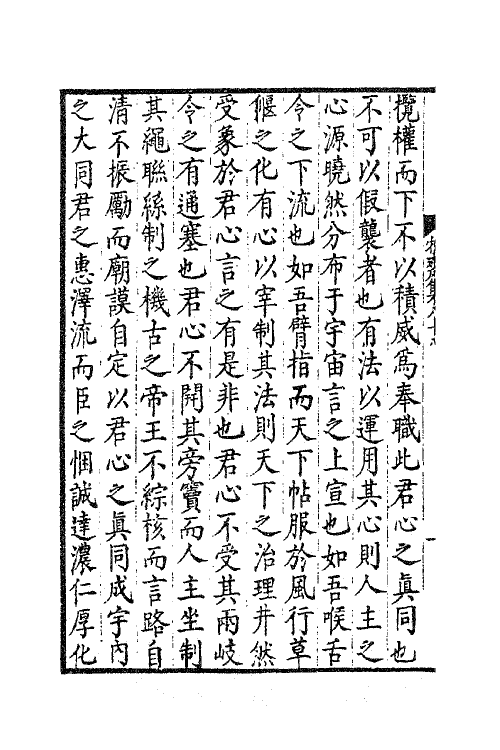 攬權而下不以積威爲奉職此君心之真同也
不可以假襲者也有法以運用其心則人主之
心源曉然分布于宇宙言之上宣也如吾喉舌
令之下流也如吾臂指而天下帖服於風行草
偃之化有心以宰制其法則天下之治理井然
受象於君心言之有是非也君心不受其兩岐
令之有通塞也君心不開其旁竇而人主坐制
其繩聯絲制之機古之帝王不綜核而言路自
清不振勵而廟謨自定以君心之眞同成宇內
之大同君之惠澤流而臣之悃誠達濃仁厚化